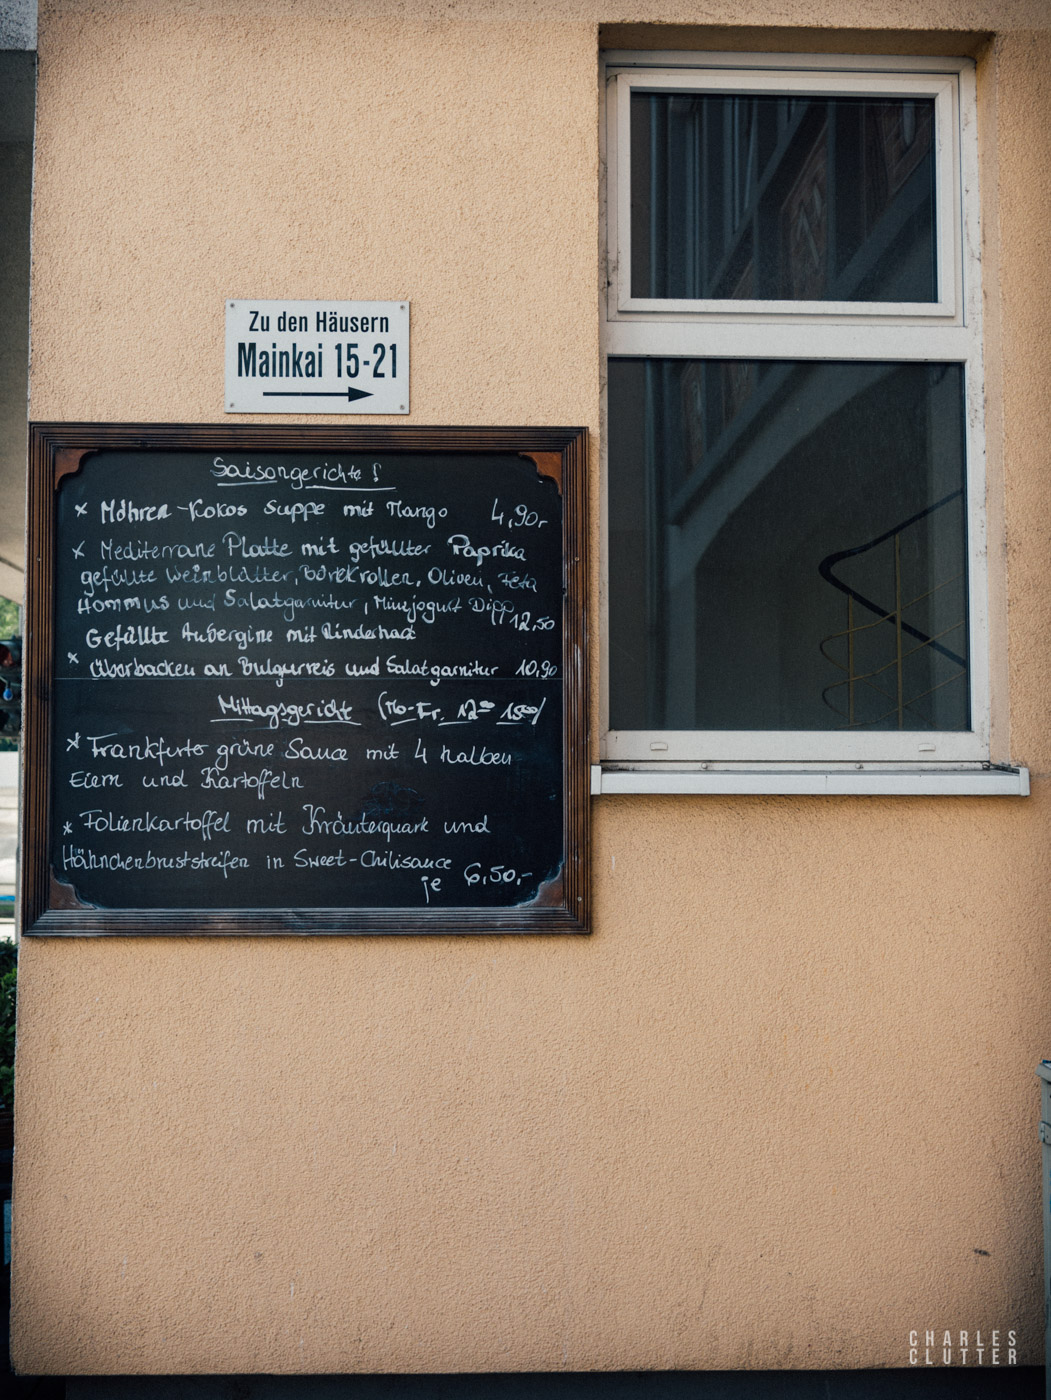 Zu den Häusern
Mainkai 15-21
Saisongerichte !
x Möhren-Kokos Suppe mit Mango 4,90,-
x Mediterrane Platte mit gefüllter Paprika
gefüllte Weinblätter, Börekrollen, Oliven, Feta
Hommus und Salatgarnitur, Minzjogurt Dipp 12,50
Gefüllte Aubergine mit Rinderhack
x Überbacken an Bulgurreis und Salatgarnitur 10,90
Mittagsgerichte (Mo-Fr. 12⁰⁰ 15⁰⁰)
x Frankfurter grüne Sauce mit 4 halben
Eiern und Kartoffeln
x Folienkartoffel mit Kräuterquark und
Hähnchenbruststreifen in Sweet-Chilisauce
je 6,50,-
CHARLES
CLUTTER